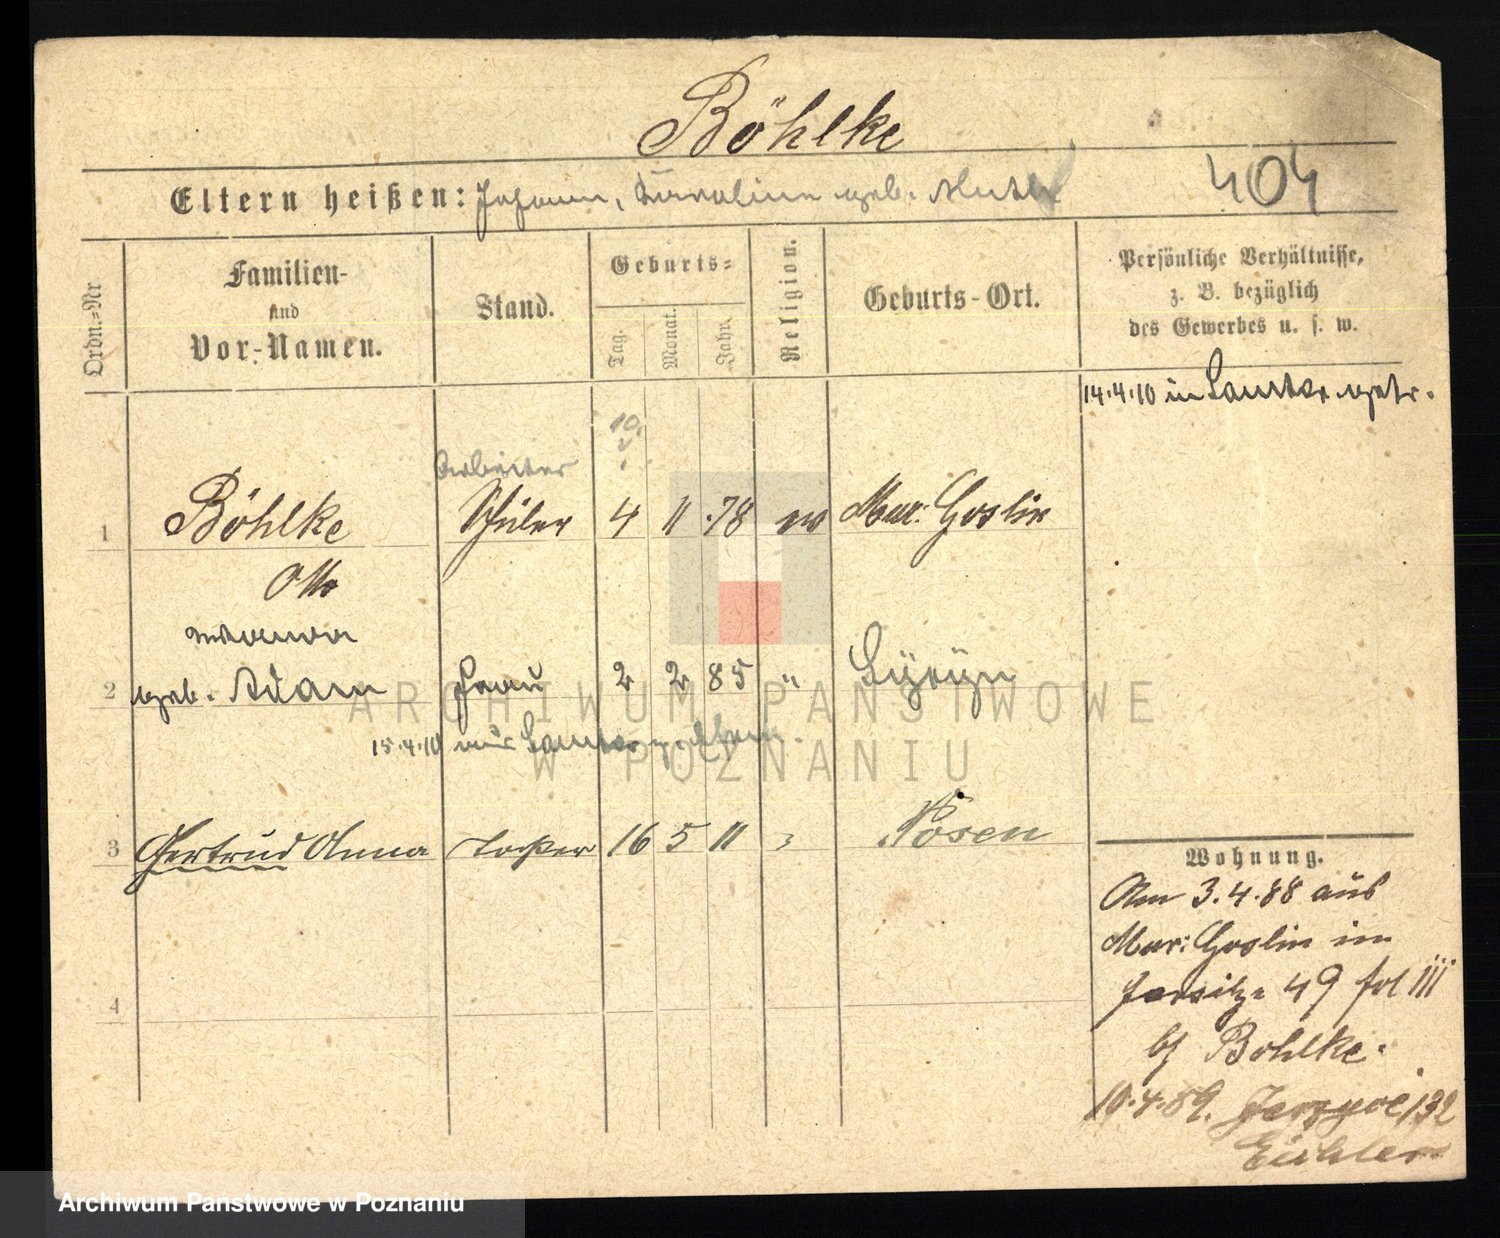 Böhlke
Eltern heißen: Johann, Karoline geb.
404
Ordn.=Nr
Familien-
und
Vor-Namen.
Stand.
Geburts=
Tag.
Monat.
Jahr.
Religion.
Geburts-Ort.
Persönliche Verhältnisse,
z. B. bezüglich
des Gewerbes u. s. w.
14.4.10 in
10.
2
Arbeiter
1 Böhlke Schüler 4 11 78 ev Mur: Goslin
Otto
2 geb. Adam Frau 2 2 85 "
15.4.10
3 Gertrud Anna Tochter 16 5 11 Posen
4
Wohnung.
Am 3.4.88 aus
Mur: Goslin in
Jersitz 49 fol III
bj Bohlke.
10.4.89. 132
Eichler
ARCHIWUM PAŃSTWOWE
W POZNANIU
Archiwum Państwowe w Poznaniu